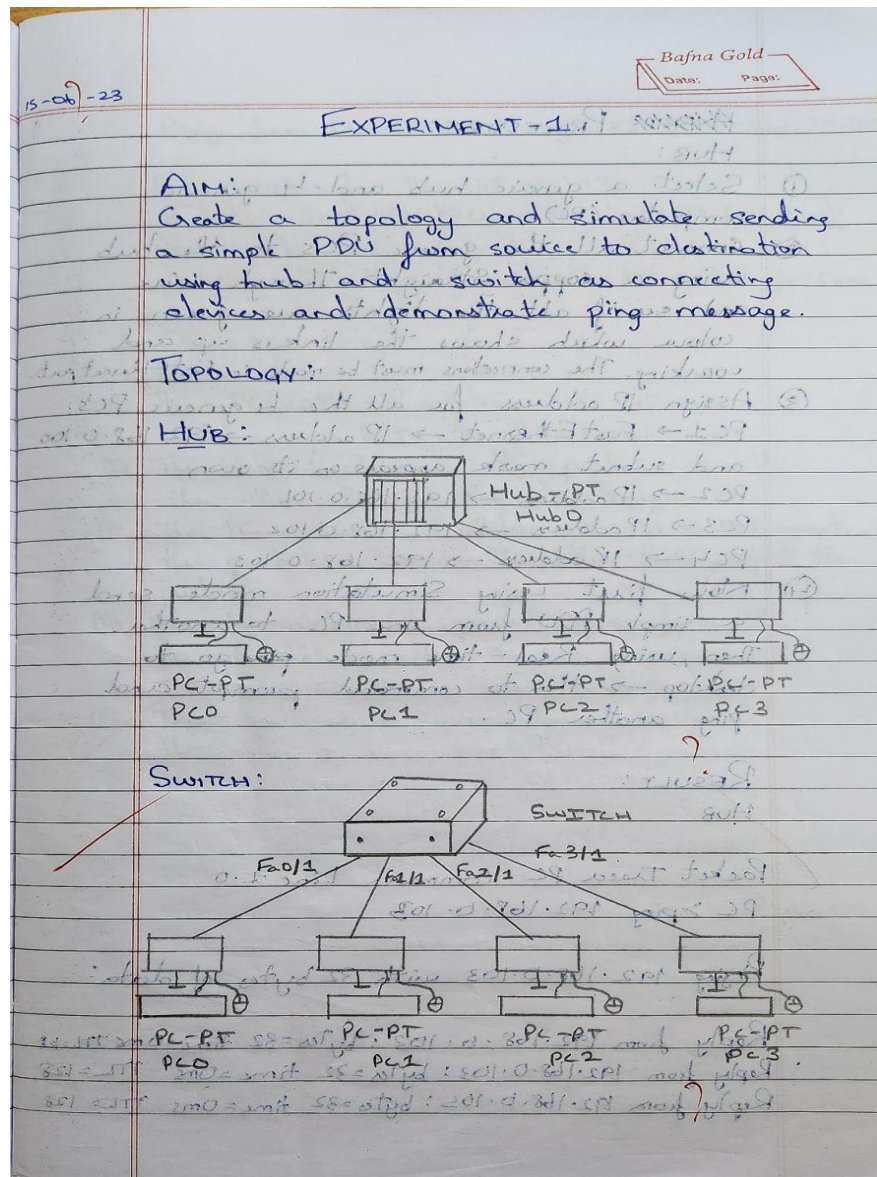 Bafna Gold
Date: Page:
15-06-23
EXPERIMENT-1
AIM:
Create a topology and simulate sending
a simple PDU from source to destination
using hub and switch as connecting
devices and demonstrate ping message.
TOPOLOGY:
HUB:
Hub-PT
Hub0
PC-PT PC-PT PC-PT PC-PT
PC0 PC1 PC2 PC3
?
SWITCH:
SWITCH
Fa0/1 Fa1/1 Fa2/1 Fa3/1
PC-PT PC-PT PC-PT PC-PT
PC0 PC1 PC2 PC3
?